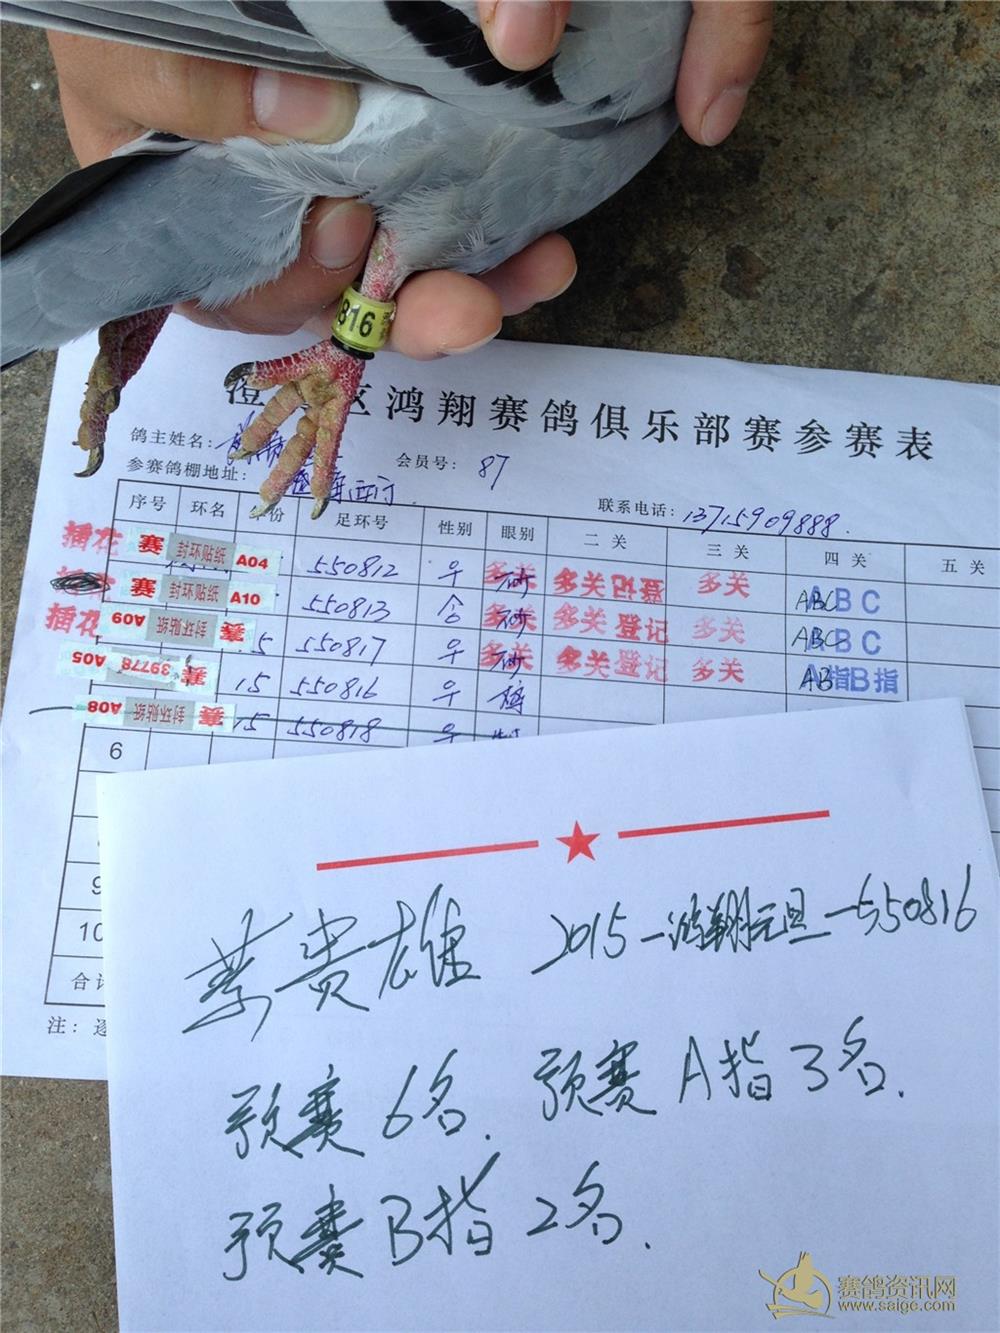 816
澄 区鸿翔赛鸽俱乐部赛参赛表
鸽主姓名:
会员号: 87
参赛鸽棚地址:
联系电话: 13715909888.
序号 环名 年份 足环号 性别 眼别 二关 三关 四关 五关
插花 赛 封环贴纸 A04 550812 多关 砂 多关登记 多关 ABC ABC
赛 封环贴纸 A10 550813 多关 砂 多关登记 多关 ABC ABC
插花 赛 封环贴纸 A09 15 550817 多关 砂 多关登记 多关 AB A指B指
赛 39778 A05 15 550816
赛 封环贴纸 A08 15 550818
6
9
10
合计
注: 逐
蔡贵雄 2015-鸿翔元旦-550816
预赛6名. 预赛A指3名.
预赛B指2名.
赛鸽资讯网
www.saige.com